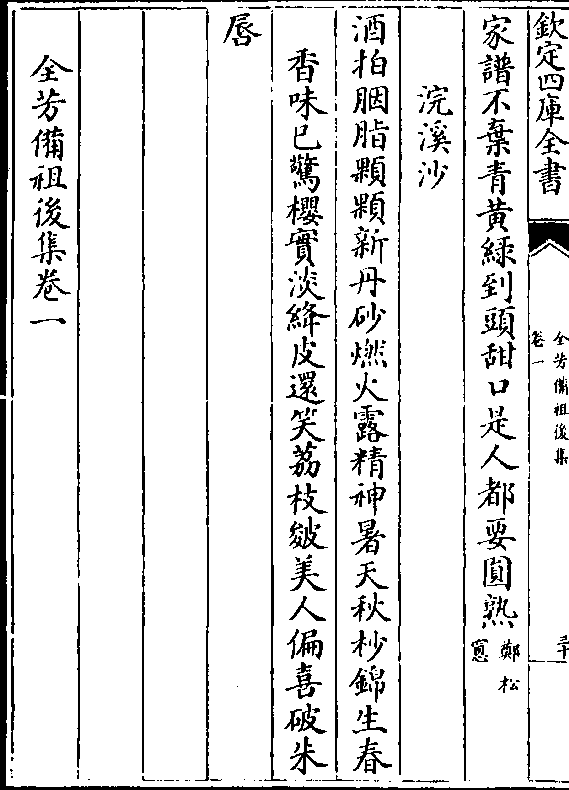 欽定四庫全書
全芳備祖後集
卷一
三十
家譜不棄青黃綠到頭甜口是人都要圓熟
鄭松
窻
浣溪沙
酒拍胭脂顆顆新丹砂燃火露精神暑天秋杪錦生春
香味已驚櫻實淡絳皮還笑荔枝皴美人偏喜破朱
唇
全芳備祖後集卷一